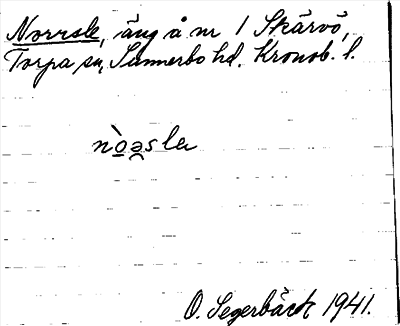 Norrsle, äng å nr 1 Skärvö,
Torpa sn, Sunnerbo hd. Kronob. l.
nò̲ə̯sla
O. Segerbäck 1941.